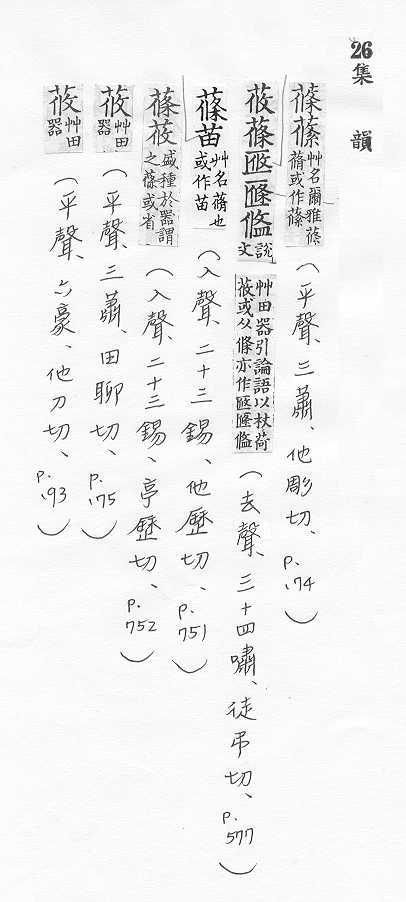 26集韻
蓧蓨 艸名爾雅蓧蓨或作蓨 (平聲、三蕭、他彫切、p.174)
莜蓧匜 說文艸田器引論語以杖荷莜或从條亦作 (去聲、三十四嘯、徒弔切、p.577)
蓧苗 艸名蓨也或作苗 (入聲、二十三錫、他歷切、p.751)
蓧莜 盛種於器謂之蓧或省 (入聲、二十三錫、亭歷切、p.752)
莜 艸田器 (平聲、三蕭、田聊切、p.175)
莜 艸田器 (平聲、六豪、他刀切、p.193)